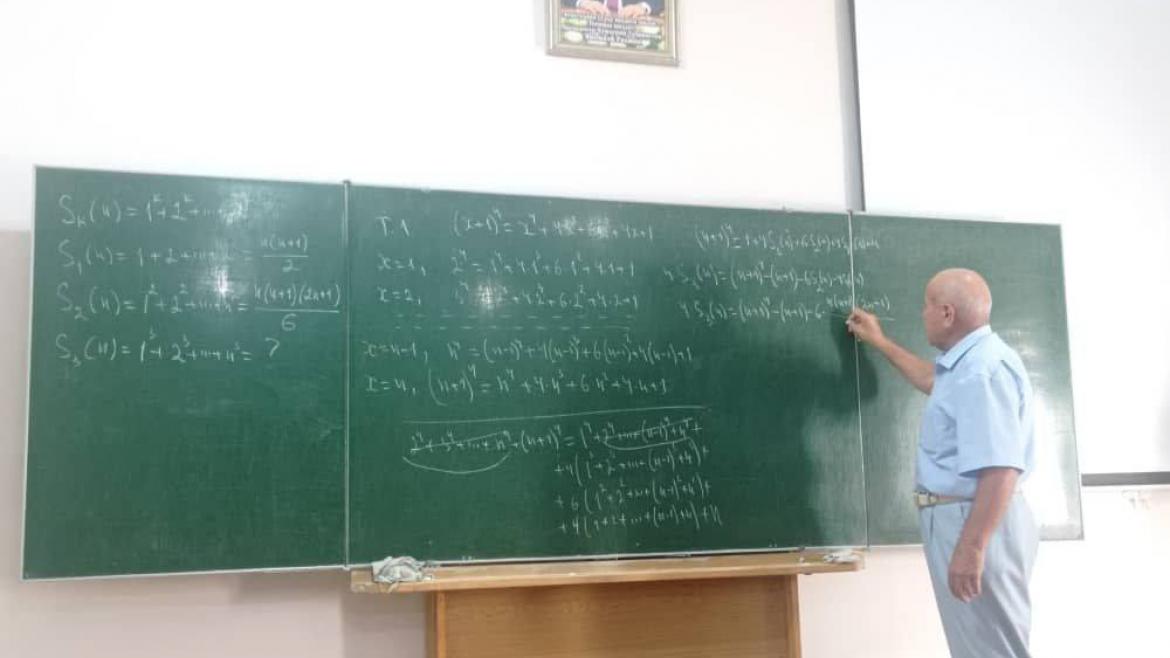 S_k(n) = 1^k + 2^k + ... +
S_1(n) = 1 + 2 + ... + n = n(n+1)/2
S_2(n) = 1^2 + 2^2 + ... + n^2 = n(n+1)(2n+1)/6
S_3(n) = 1^3 + 2^3 + ... + n^3 = ?
T.1 (x+1)^4 = x^4 + 4x^3 + 6x^2 + 4x + 1
x=1, 2^4 = 1^4 + 4·1^3 + 6·1^2 + 4·1 + 1
x=2, 3^4 = 2^4 + 4·2^3 + 6·2^2 + 4·2 + 1
x=n-1, n^4 = (n-1)^4 + 4(n-1)^3 + 6(n-1)^2 + 4(n-1) + 1
x=n, (n+1)^4 = n^4 + 4·n^3 + 6·n^2 + 4·n + 1
2^4 + 3^4 + ... + n^4 + (n+1)^4 = 1^4 + 2^4 + ... + (n-1)^4 + n^4 +
+ 4(1^3 + 2^3 + ... + (n-1)^3 + n^3) +
+ 6(1^2 + 2^2 + ... + (n-1)^2 + n^2) +
+ 4(1 + 2 + ... + (n-1) + n) + n
(n+1)^4 = 1 + 4S_3(n) + 6S_2(n) + 4S_1(n) + n
4S_3(n) = (n+1)^4 - (n+1) - 6S_2(n) - 4S_1(n)
4S_3(n) = (n+1)^4 - (n+1) - 6· n(n+1)(2n+1)